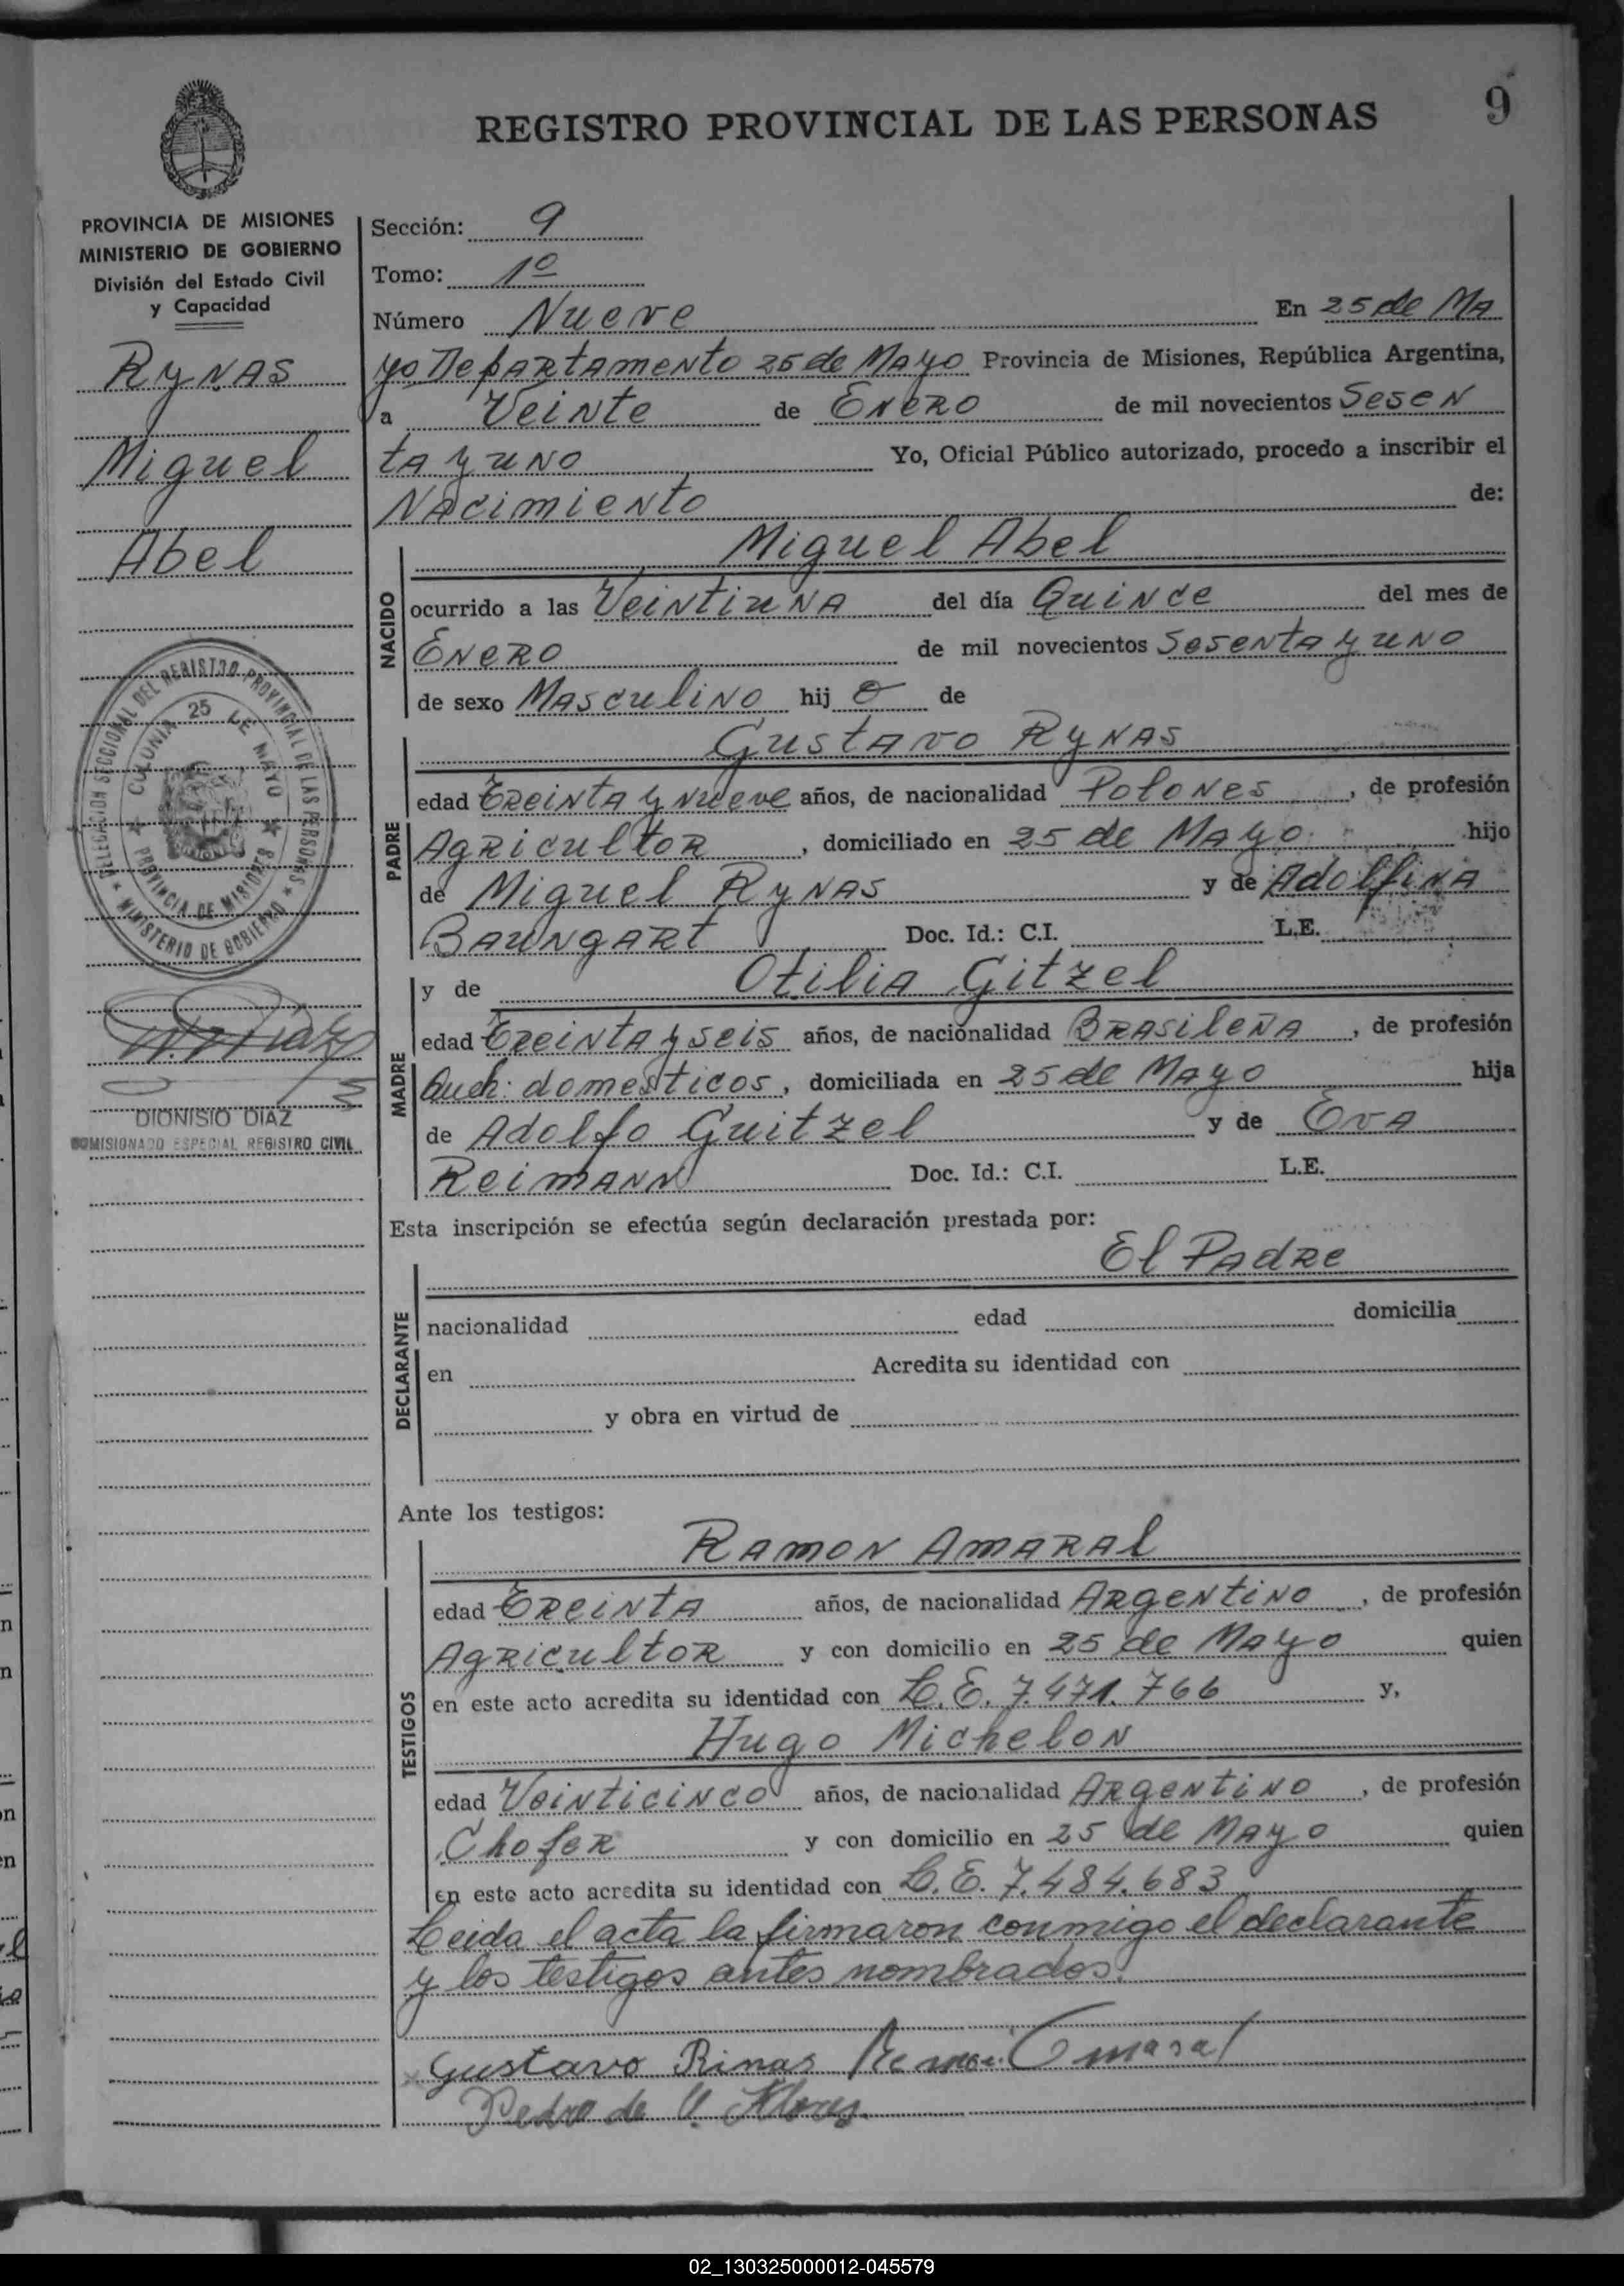 9
REGISTRO PROVINCIAL DE LAS PERSONAS
PROVINCIA DE MISIONES
MINISTERIO DE GOBIERNO
División del Estado Civil
y Capacidad
RyNAS
Miguel
Abel
DELEGACION SECCIONAL DEL REGISTRO PROVINCIAL DE LAS PERSONAS
★ MINISTERIO DE GOBIERNO ★
COLONIA 25 DE MAYO
★ PROVINCIA DE MISIONES ★
DIONISIO DIAZ
COMISIONADO ESPECIAL REGISTRO CIVIL
Sección: 9
Tomo: 1º
Número Nueve En 25 de MA
yo Departamento 25 de Mayo Provincia de Misiones, República Argentina,
a Veinte de Enero de mil novecientos Sesen
ta y uno Yo, Oficial Público autorizado, procedo a inscribir el
Nacimiento de:
NACIDO
Miguel Abel
ocurrido a las Veintiuna del día Quince del mes de
Enero de mil novecientos Sesenta y uno
de sexo Masculino hij o de
PADRE
Gustavo Rynas
edad Treinta y nueve años, de nacionalidad Polones, de profesión
Agricultor, domiciliado en 25 de Mayo hijo
de Miguel Rynas y de Adolfina
Baungart Doc. Id.: C.I. L.E.
MADRE
y de Otilia Gitzel
edad Treinta y seis años, de nacionalidad Brasileña, de profesión
Queh: domesticos, domiciliada en 25 de Mayo hija
de Adolfo Guitzel y de Eva
Reimann Doc. Id.: C.I. L.E.
Esta inscripción se efectúa según declaración prestada por:
DECLARANTE
El Padre
nacionalidad edad domicilia
en Acredita su identidad con
y obra en virtud de
Ante los testigos:
TESTIGOS
Ramon Amaral
edad Treinta años, de nacionalidad Argentino, de profesión
Agricultor y con domicilio en 25 de Mayo quien
en este acto acredita su identidad con L.E. 7.471.766 y,
Hugo Michelon
edad Veinticinco años, de nacionalidad Argentino, de profesión
Chofer y con domicilio en 25 de Mayo quien
en este acto acredita su identidad con L.E. 7.484.683
Leida el acta la firmaron conmigo el declarante
y los testigos antes nombrados.
Gustavo Rinas Amaral
Pedro de
02_130325000012-045579